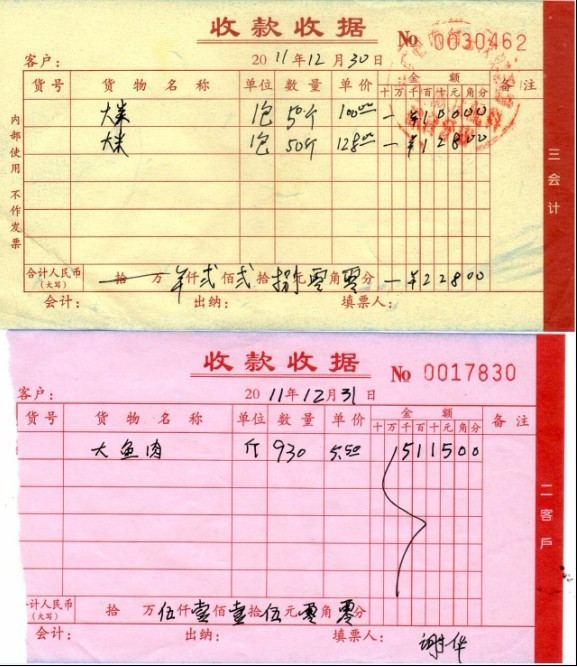 收款收据 No 0030462
客户: 2011年12月30日
货号 货物名称 单位 数量 单价 金额 备注
十万千百十元角分
大米 1包 50斤 100.00 ¥10000
大米 1包 50斤 128.00 ¥12800
合计人民币(大写) 拾 万 ¥ 仟 弍 佰 弍 拾 捌 元 零 角 零 分 ¥22800
会计: 出纳: 填票人:
内部使用 不作发票
三会计
收款收据 No 0017830
客户: 2011年12月31日
货号 货物名称 单位 数量 单价 金额 备注
十万千百十元角分
大鱼肉 斤 930 5.50 511500
合计人民币(大写) 拾 万 伍 仟 壹 佰 壹 拾 伍 元 零 角 零 分
会计: 出纳: 填票人:
谢华
二客户